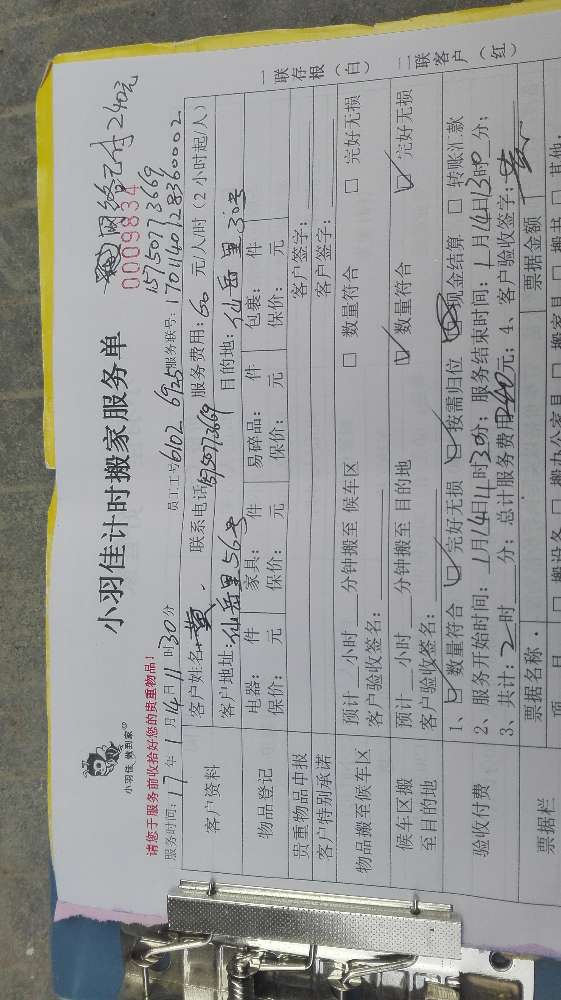 小羽佳 做到家
小羽佳计时搬家服务单
网络已付240元
0009834
15750773669
请您于服务前收拾好您的贵重物品!
服务时间:17年1月14日11时30分 员工工号6102 6925服务联号:1701140728360002
客户资料
客户姓名:黄 联系电话15750773669 服务费用:60元/人/时(2小时起/人)
客户地址:仙岳里56号 目的地:仙岳里30号
物品登记
电器: 件 家具: 件 易碎品: 件 包裹: 件
保价: 元 保价: 元 保价: 元 保价: 元
贵重物品申报 客户签字:
客户特别承诺 客户签字:
物品搬至候车区
预计 小时 分钟搬至 候车区 □ 数量符合 □ 完好无损
客户验收签名:
候车区搬至目的地
预计 小时 分钟搬至 目的地 ☑ 数量符合 ☑ 完好无损
客户验收签名:
验收付费
1、☑ 数量符合 ☑ 完好无损 ☑ 按需归位 现金结算 □ 转账汇款
2、服务开始时间:1月14日11时30分;服务结束时间:1月14日13时30分;
3、共计:2时 分;总计服务费用240元;4、客户验收签字:黄
票据栏
票据名称 票据金额
项 目 □ 搬设备 □ 搬办公家具 □ 搬家具 □ 搬书 □ 其他:
一联存根(白)
二联客户(红)